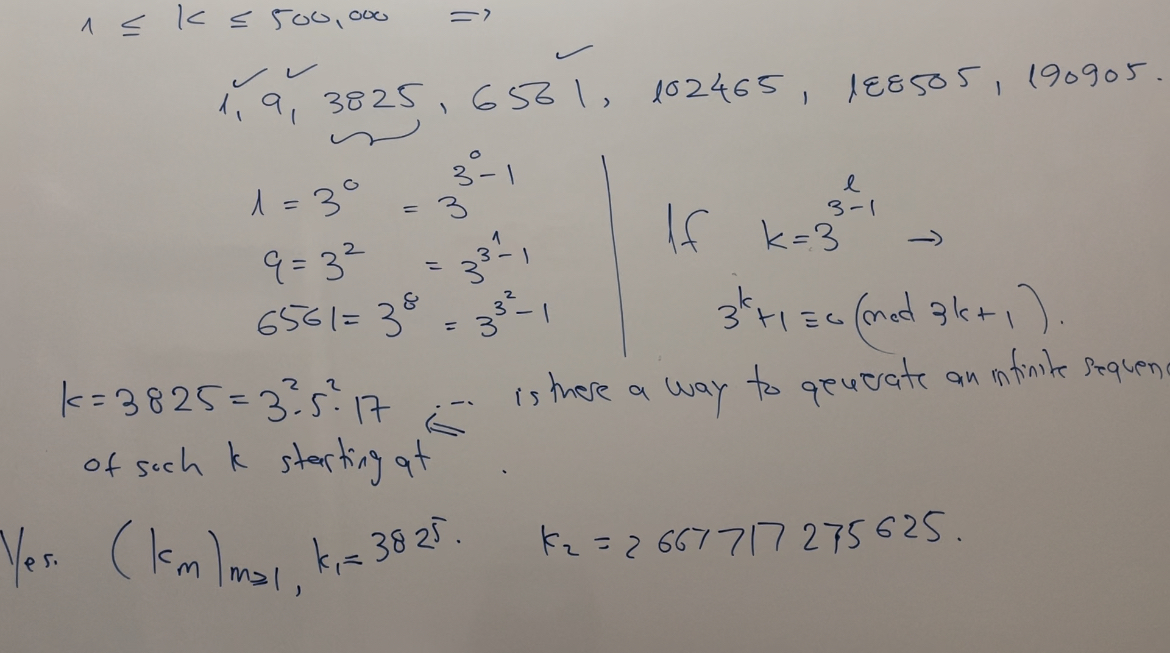 1 ≤ k ≤ 500,000 ⇒
1, 9, 3825, 6561, 102465, 188505, 190905.
1 = 3^0 = 3^{3^0-1}
9 = 3^2 = 3^{3^1-1}
6561 = 3^8 = 3^{3^2-1}
If k = 3^{3^l-1} →
3^k+1 ≡ 0 (mod 3k+1).
k = 3825 = 3^2·5^2·17 ⇐ is there a way to generate an infinite sequenc
of such k starting at .
Yes. (k_m)_{m≥1}, k_1 = 3825. k_2 = 2667717275625.